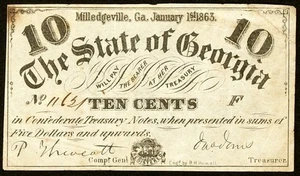 Milledgeville, Ga. January 1st 1863.
10 10
The State of Georgia
WILL PAY THE BEARER AT HER TREASURY
No TEN CENTS F
in Confederate Treasury Notes, when presented in sums of
Five Dollars and upwards.
Compt Genl Treasurer.